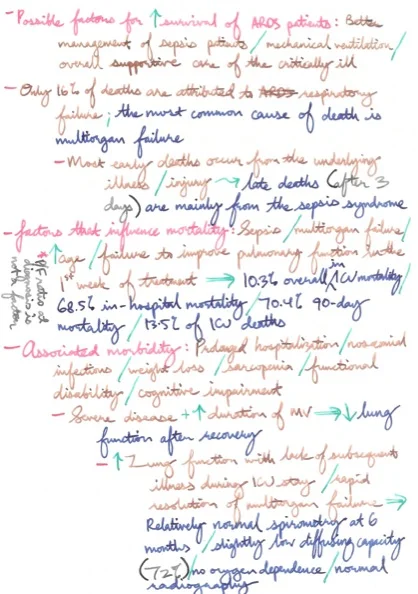 - Possible factors for ↑ survival of ARDS patients: Better
management of sepsis patients / mechanical ventilation /
overall supportive care of the critically ill
- Only 16% of deaths are attributed to ARDS respiratory
failure; the most common cause of death is
multiorgan failure
- Most early deaths occur from the underlying
illness / injury → late deaths (after 3
days) are mainly from the sepsis syndrome
- factors that influence mortality: Sepsis / multiorgan failure /
↑ age / failure to improve pulmonary function in the
1st week of treatment → 10.3% overall in ICU mortality /
68.5% in-hospital mortality / 70.4% 90-day
mortality / 13.5% of ICU deaths
* P/F ratio at
diagnosis is
not a factor
- Associated morbidity: Prolonged hospitalization / nosocomial
infections / weight loss / sarcopenia / functional
disability / cognitive impairment
- Severe disease + ↑ duration of MV ⇒ ↓ lung
function after recovery
- ↑ Lung function with lack of subsequent
illness during ICU stay / rapid
resolution of multiorgan failure ⇒
Relatively normal spirometry at 6
months / slightly low diffusing capacity
(72%) / no oxygen dependence / normal
radiography